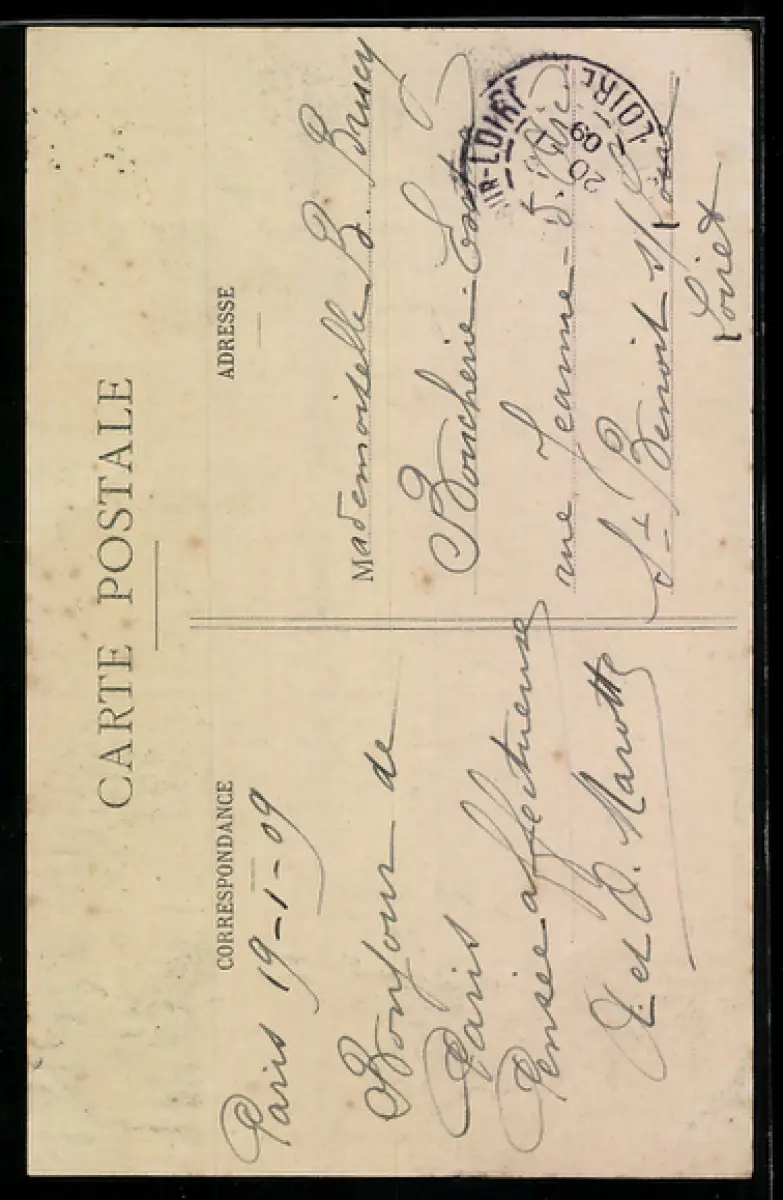 CARTE POSTALE
CORRESPONDANCE
Paris 19-1-09
Bonjour de
Paris
Pensée affectueuse
et O. Marotte
ADRESSE
Mademoiselle B. Bruey
Boucherie
rue Jeanne-d'Arc
St Benoit s/ Loire
Loiret
UR-LOIRE
20
1
09
LOIRE